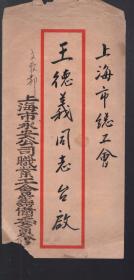 上海市總工會
王德義同志台啟
上海市永安公司職業工會籌備委員會